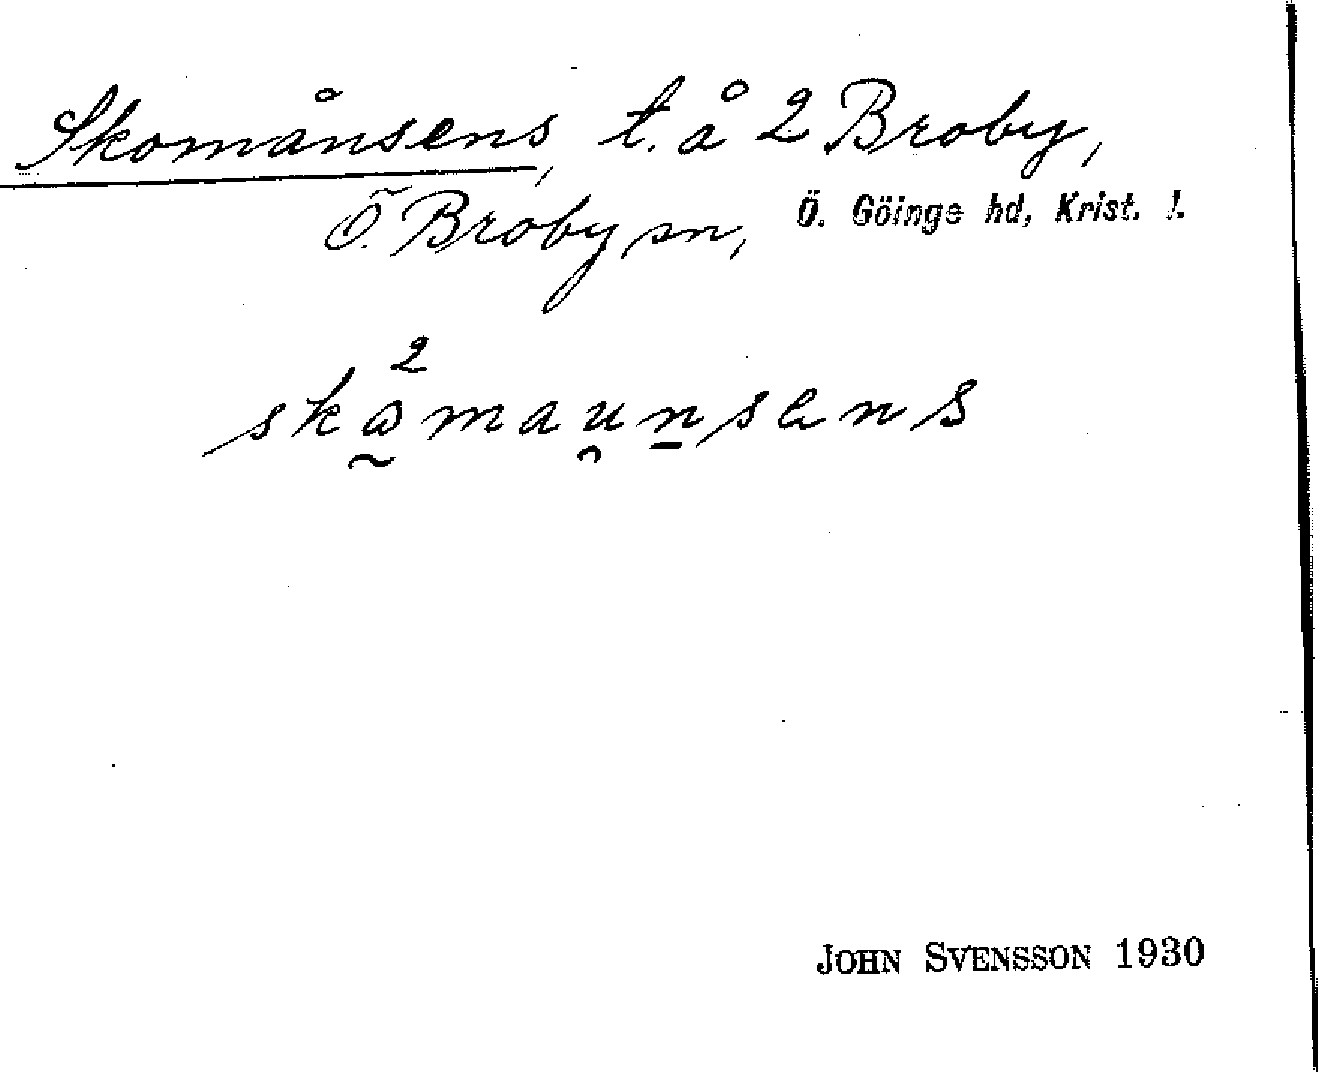 Skomånsens, t. å 2 Broby,
Ö. Broby sn, Ö. Göinge hd, Krist. l.
2
skåmaunsens
JOHN SVENSSON 1930